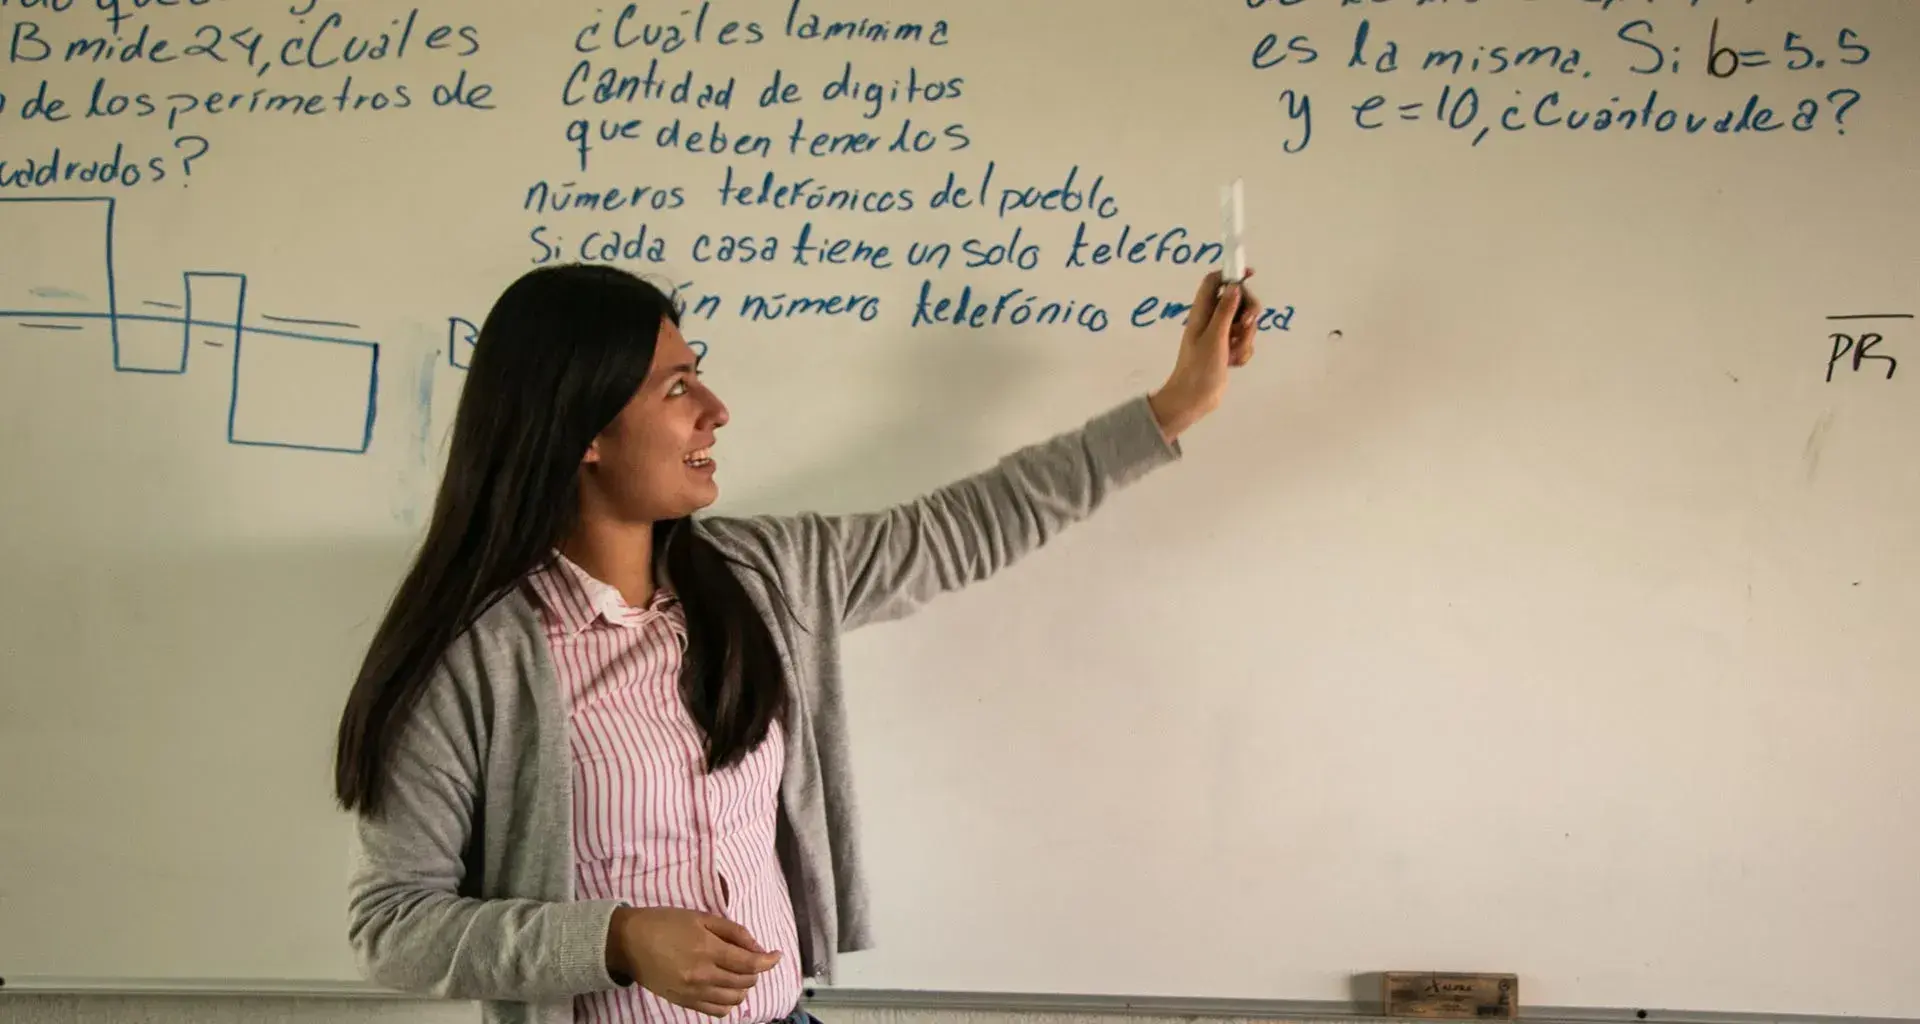 B mide 24, ¿Cuál es
de los perímetros de
cuadrados?
B
¿Cuál es la mínima
Cantidad de digitos
que deben tener los
números telefónicos del pueblo
Si cada casa tiene un solo teléfon
número telefónico em
?
es la misma. Si b=5.5
y e=10, ¿Cuánto vale a?
PR